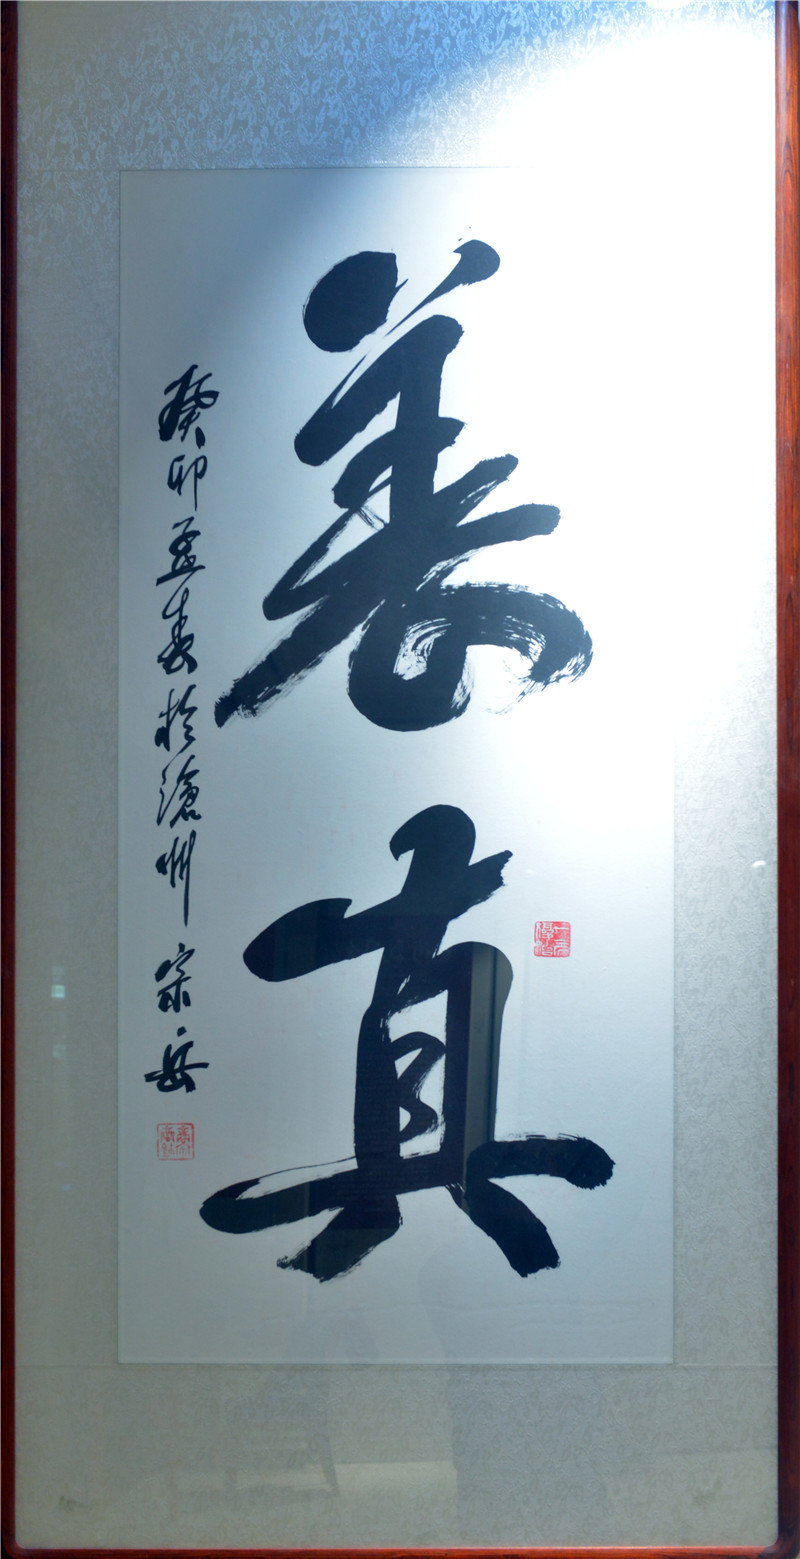 養真
癸卯孟春於滄州 宗岳